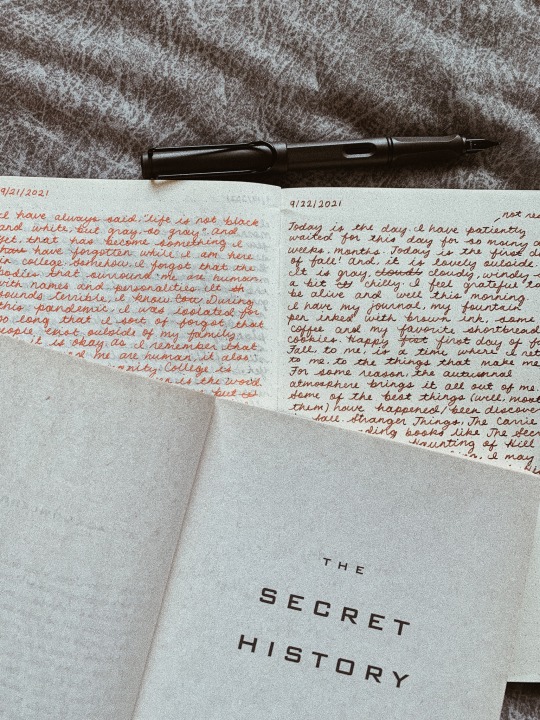 9/21/2021
I have always said, "life is not black
and white, but gray, so gray" and
yet, that has become something I
have forgotten while I am here
in college. Somehow, I forgot that the
bodies that surround me are human
with names and personalities. It
sounds terrible, I know. During
this pandemic, I was isolated for
so long that I sort of forgot that
people exist outside of my family.
it is okay, as I remember that
me are human, it also
College is
is the wood
9/22/2021
not re
Today is the day I have patiently
waited for this day for so many
weeks months. Today is the first d
of fall! And, it is lovely outside
It is gray, clouds cloudy, windy
a bit chilly. I feel grateful to
be alive and well this morning.
I have my journal, my fountain
pen inked with brown ink, some
coffee and my favorite shortbread
cookies. Happy first day of fa
Fall, to me, is a time where I ret
to me. to the things that make me
For some reason, the autumnal
atmosphere brings it all out of me.
Some of the best things (well, most
them) have happened/been discover
fall. Stranger Things, The Carrie
ding books like The Secr
Haunting of Hill
I may
THE
SECRET
HISTORY